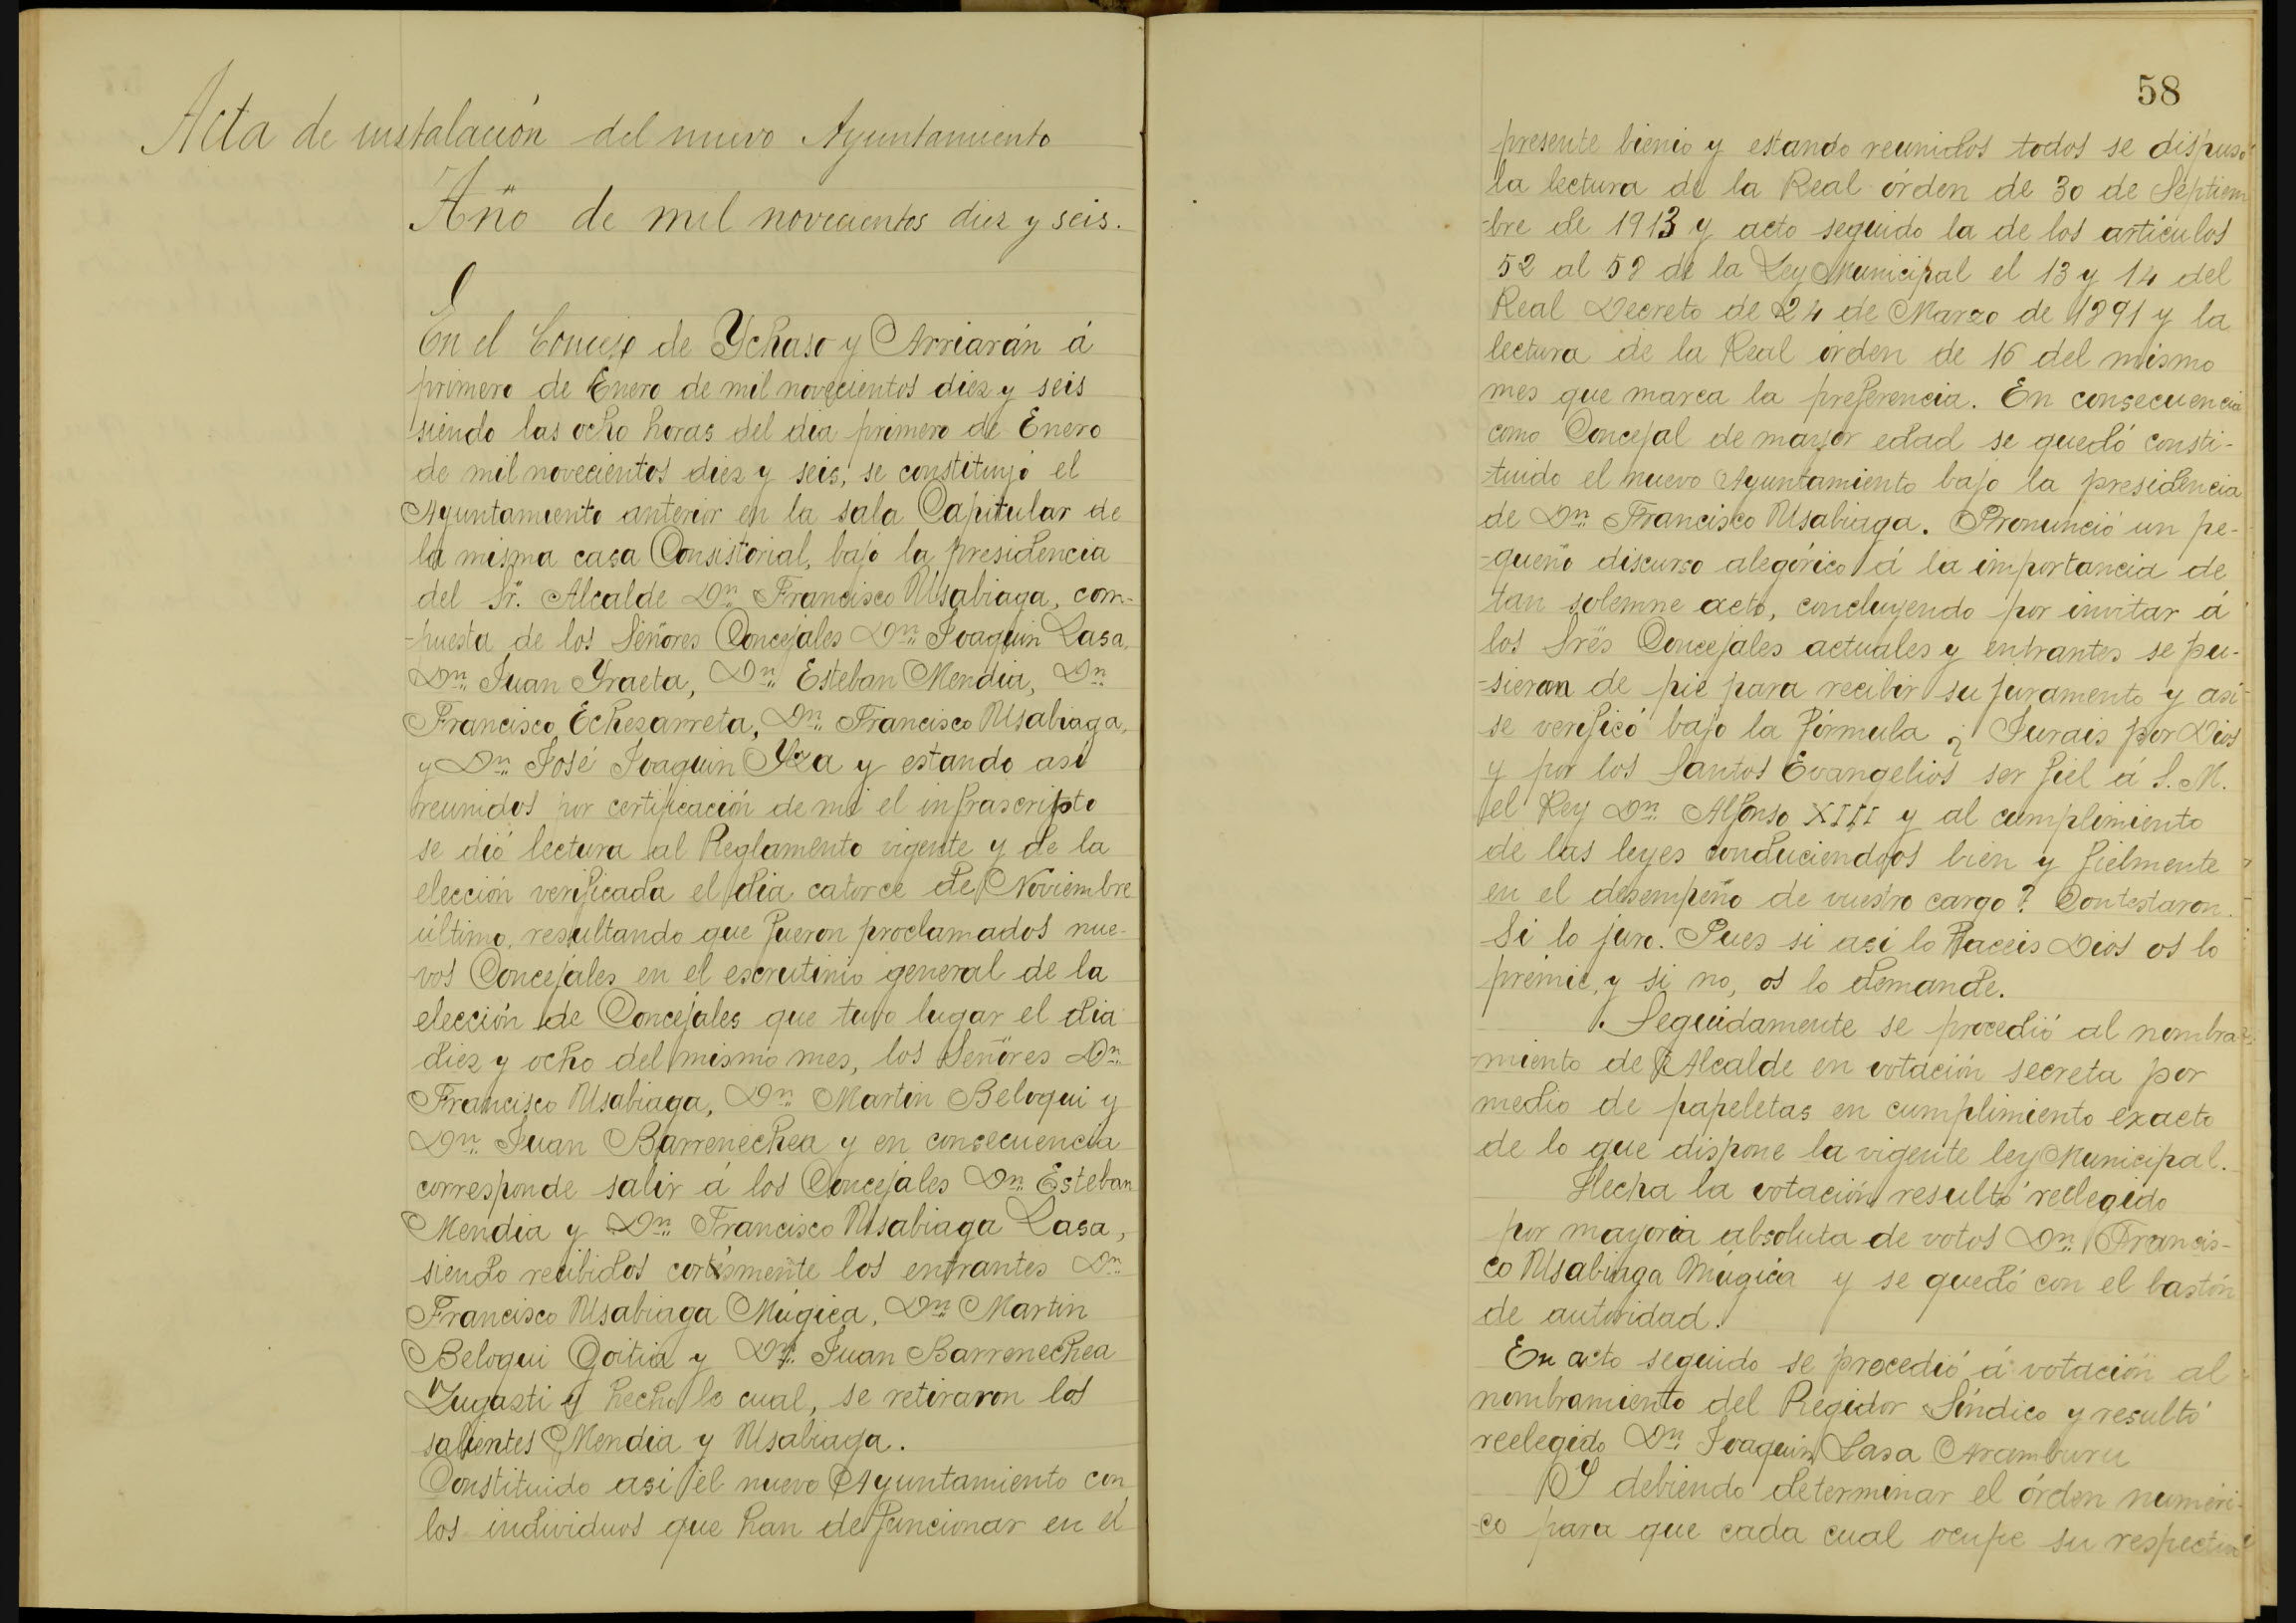 Acta de instalación del nuevo Ayuntamiento
Año de mil novecientos diez y seis.
En el Concejo de Ychaso y Arriarán á
primero de Enero de mil novecientos diez y seis
siendo las ocho horas del dia primero de Enero
de mil novecientos diez y seis, se constituyó el
Ayuntamiento anterior en la sala Capitular de
la misma casa Consistorial, bajo la presidencia
del Sr. Alcalde Dn. Francisco Usabiaga, com-
-puesta de los Señores Concejales Dn. Joaquin Lasa,
Dn. Juan Yraeta, Dn. Esteban Mendia, Dn.
Francisco Echesarreta, Dn. Francisco Usabiaga,
y Dn. José Joaquin Yza y estando asi
reunidos por certificación de mi el infrascripto
se dió lectura al Reglamento vigente y de la
elección verificada el dia catorce de Noviembre
último, resultando que fueron proclamados nue-
vos Concejales en el escrutinio general de la
elección de Concejales que tuvo lugar el dia
diez y ocho del mismo mes, los Señores Dn.
Francisco Usabiaga, Dn. Martin Beloqui y
Dn. Juan Barrenechea y en consecuencia
corresponde salir á los Concejales Dn. Esteban
Mendia y Dn. Francisco Usabiaga Lasa,
siendo recibidos cortésmente los entrantes Dn.
Francisco Usabiaga Múgica, Dn. Martin
Beloqui Goitia y Dn. Juan Barrenechea
Zugasti y hecho lo cual, se retiraron los
salientes Mendia y Usabiaga.
Constituido asi el nuevo Ayuntamiento con
los individuos que han de funcionar en el
58
presente bienio y estando reunidos todos se dispuso
la lectura de la Real órden de 30 de Septiem
-bre de 1913 y acto seguido la de los articulos
52 al 58 de la Ley Municipal el 13 y 14 del
Real Decreto de 24 de Marzo de 1891 y la
lectura de la Real órden de 16 del mismo
mes que marca la preferencia. En consecuencia
como Concejal de mayor edad se quedó consti-
-tuido el nuevo Ayuntamiento bajo la presidencia
de Dn. Francisco Usabiaga. Pronunció un pe-
-queño discurso alegórico á la importancia de
tan solemne acto, concluyendo por invitar á
los Sres Concejales actuales y entrantes se pu-
-sieran de pie para recibir su juramento y asi
se verificó bajo la fórmula ¿ Jurais por Dios
y por los Santos Evangelios ser fiel á S. M.
el Rey Dn. Alfonso XIII y al cumplimiento
de las leyes conduciendoos bien y fielmente
en el desempeño de vuestro cargo? Contestaron
Si lo juro. Pues si asi lo haceis Dios os lo
premie, y si no, os lo demande.
Seguidamente se procedió al nombra-
-miento de Alcalde en votación secreta por
medio de papeletas en cumplimiento exacto
de lo que dispone la vigente ley Municipal.
Hecha la votación resultó reelegido
por mayoria absoluta de votos Dn. Francis-
co Usabiaga Múgica y se quedó con el bastón
de autoridad.
En acto seguido se procedió á votación al
nombramiento del Regidor Síndico y resultó
reelegido Dn. Joaquin Lasa Aramburu
Y debiendo determinar el órden numeri-
-co para que cada cual ocupe su respectivo